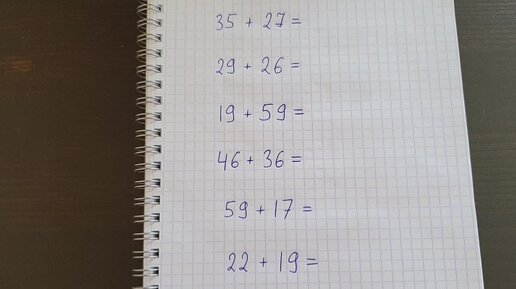 35 + 27 =
29 + 26 =
19 + 59 =
46 + 36 =
59 + 17 =
22 + 19 =